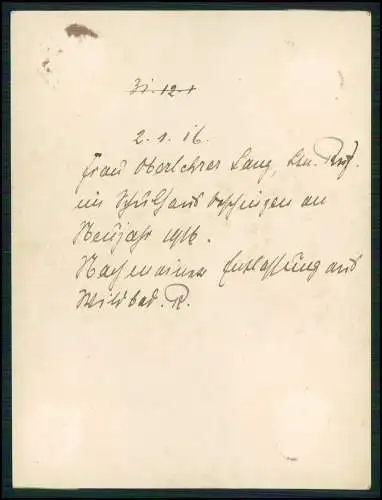 31. 12. 1
2. 1. 16.
Frau Oberlehrer Lang, Ltn. Ruf.
im Schulhaus Oefingen an
Neujahr 1916.
Nach meiner Entlassung aus
Wildbad. R.